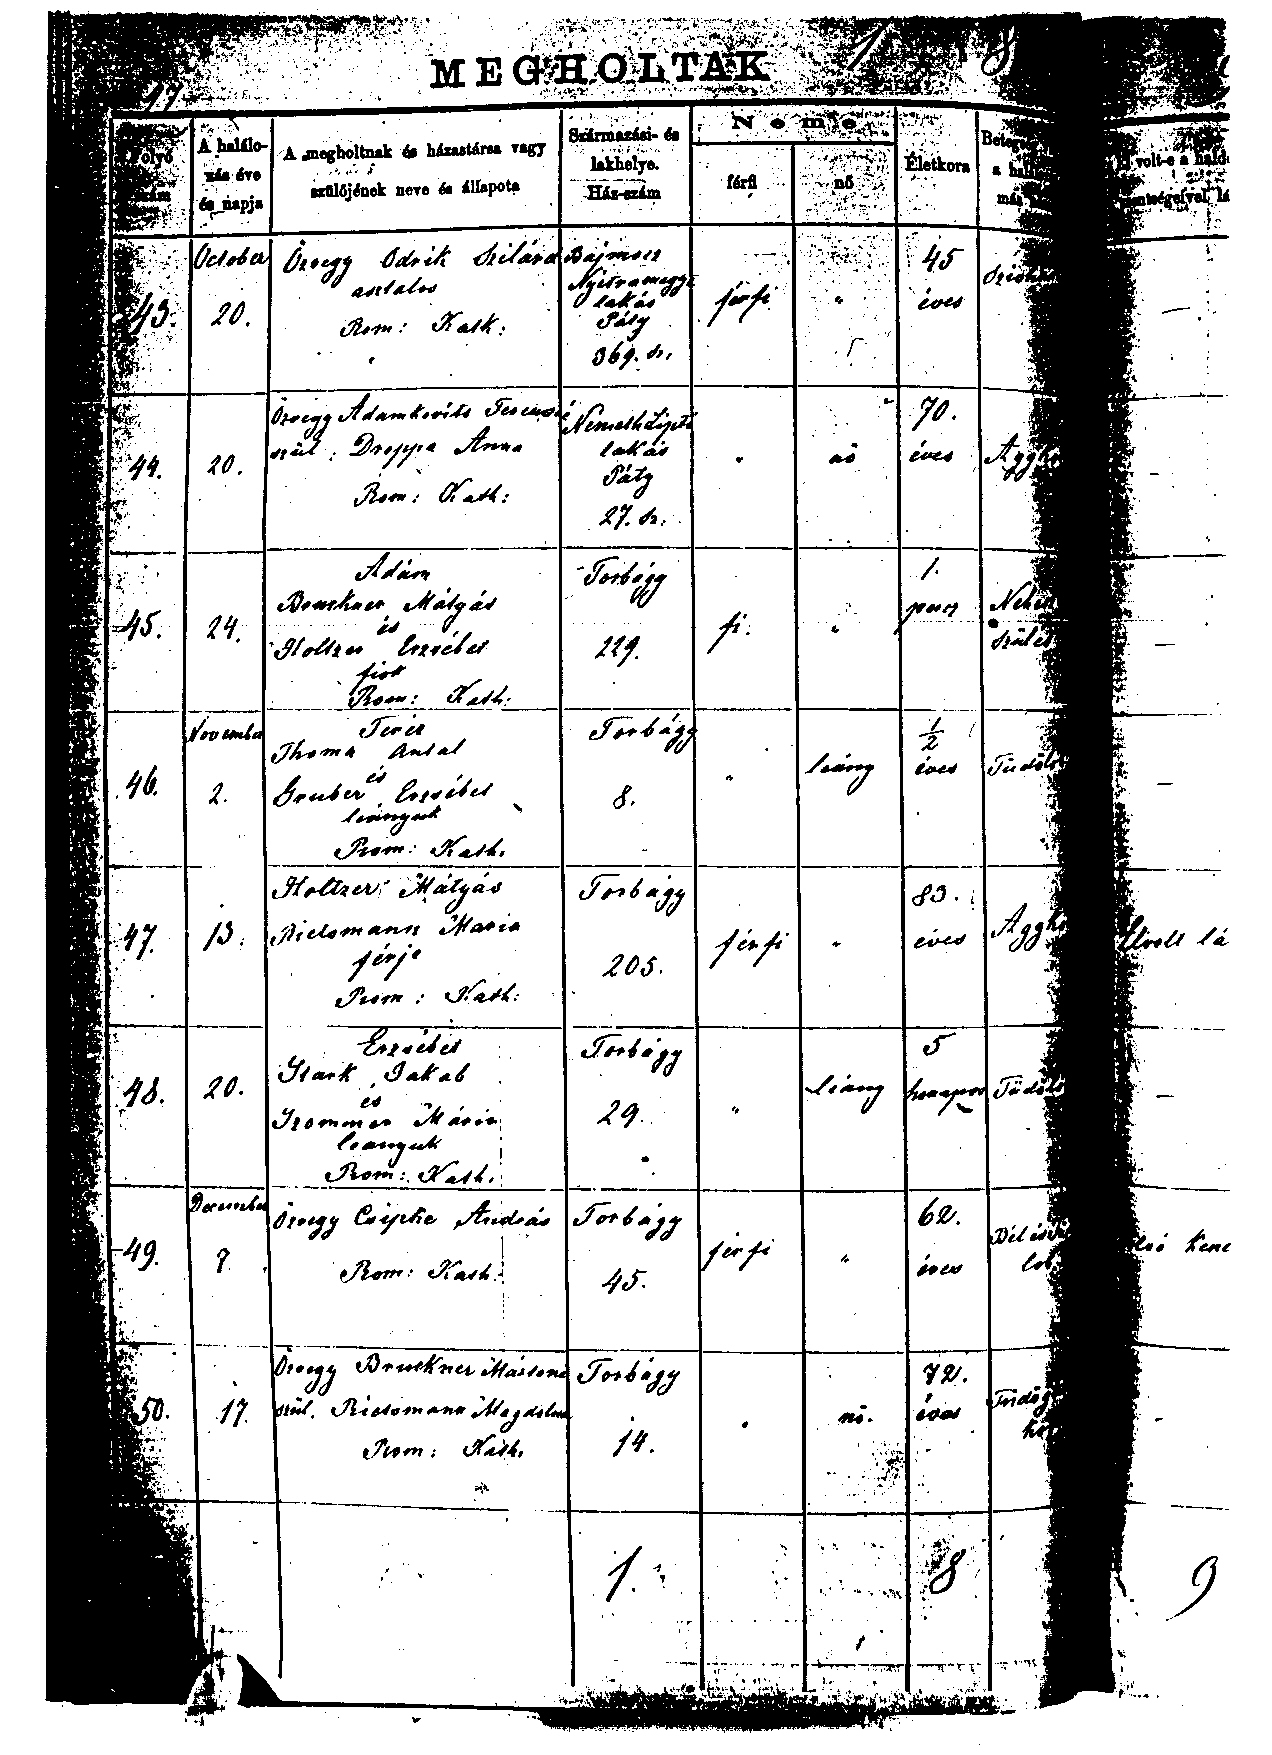 MEGHOLTAK
1 8
17
Folyó szám
A halálozás éve és napja
A megholtnak és házastársa vagy szülőjének neve és állapota
Származási- és lakhelye. Ház-szám
Neme
férfi
nő
Életkora
a hal
más
volt-e a hal
October
Özvegy Odrik Szilárd
asztalos
Rom: Kath:
43.
20.
Bajmocz
Nyitramegye
lakás
Páty
369. sz.
férfi
"
45
éves
44.
20.
Özvegy Adamkovits Ferencné
szül: Droppa Anna
Rom: Kath:
lakás
Páty
27. sz.
"
nő
70.
éves
Aggk
45.
24.
Ádám
Bruckner Mátyás
és
Holtzer Erzsébet
fiok
Rom: Kath:
Torbágy
229.
fi.
"
1.
perc
Nehéz
szülés
November
46.
2.
Teréz
Thoma Antal
és
Gruber Erzsébet
leányuk
Rom: Kath.
Torbágy
8.
"
leány
1/2
éves
Tüdől
47.
13.
Holtzer Mátyás
Rielsmann Maria
férje
Rom: Kath:
Torbágy
205.
férfi
"
83.
éves
Aggk
48.
20.
Erzsébet
Stark Jakab
és
Trommer Mária
leanyuk
Rom: Kath.
Torbágy
29.
"
leány
5
hónapos
Tüdől
December
49.
7.
Özvegy Csipke András
Rom: Kath.
Torbágy
45.
férfi
"
62.
éves
50.
17.
Özvegy Bruckner Mártonné
szül. Rielsmann Magdolna
Rom: Kath.
Torbágy
14.
"
nő.
72.
éves
1.
8
9